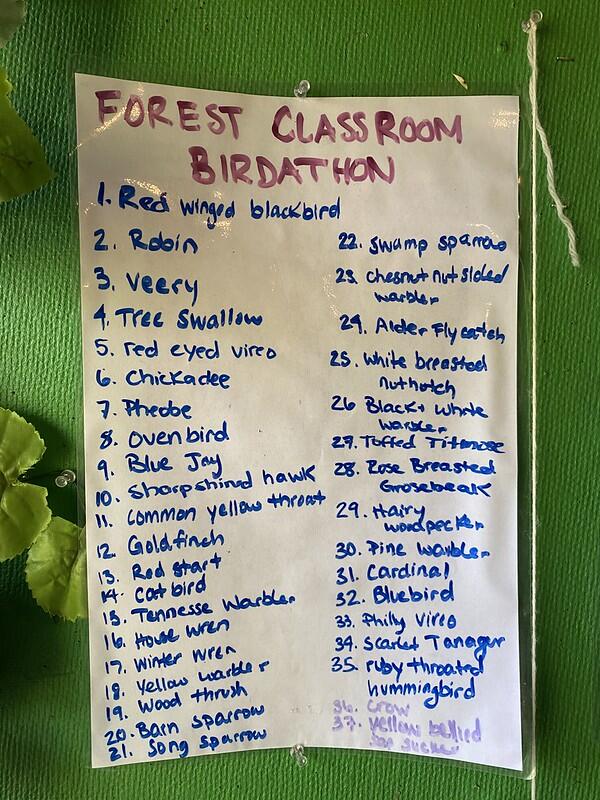 FOREST CLASSROOM
BIRDATHON
1. Red winged blackbird
2. Robin
3. Veery
4. Tree Swallow
5. red eyed vireo
6. Chickadee
7. Pheobe
8. ovenbird
9. Blue Jay
10. Sharpshined hawk
11. common yellow throat
12. Goldfinch
13. Red start
14. Cat bird
15. Tennesse Warbler
16. House Wren
17. Winter Wren
18. Yellow warbler
19. Wood thrush
20. Barn sparrow
21. Song sparrow
22. Swamp sparrow
23. Chesnut nut sided
warbler
24. Alder Fly catch
25. White breasted
nuthatch
26 Black + White
warbler
27. Toffed Titmose
28. Rose Breasted
Grosebeak
29. Hairy
woodpecker
30. Pine warbler
31. Cardinal
32. Bluebird
33. Philly Vireo
34. Scarlet Tanager
35. ruby throated
hummingbird
36. Crow
37. Yellow bellied
Sap sucker